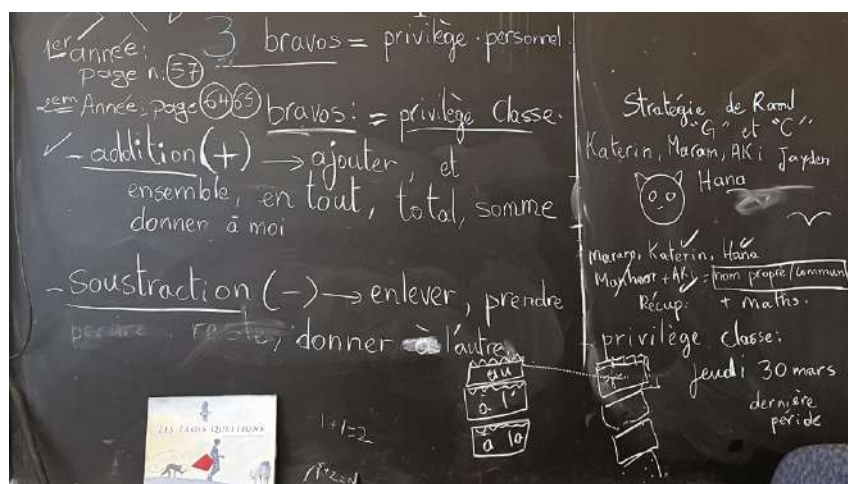 1er année:
page n: 57
3 bravos = privilège personnel.
2em Année: page 64 65
bravos: = privilège Classe.
- addition (+) → ajouter, et
ensemble, en tout, total, somme
donner à moi
- Soustraction (-) → enlever, prendre
perdre reste, donner à l'autre
au
à l'
à la
1+1=2
LES TROIS QUESTIONS
Stratégie de Raoul
"G" et "C"
Katerin, Maram, AKi Jayden
Hana
Katerin, Hana
+ AKi = nom propre/commun
Récup: + maths.
privilège classe:
jeudi 30 mars
dernière
péride